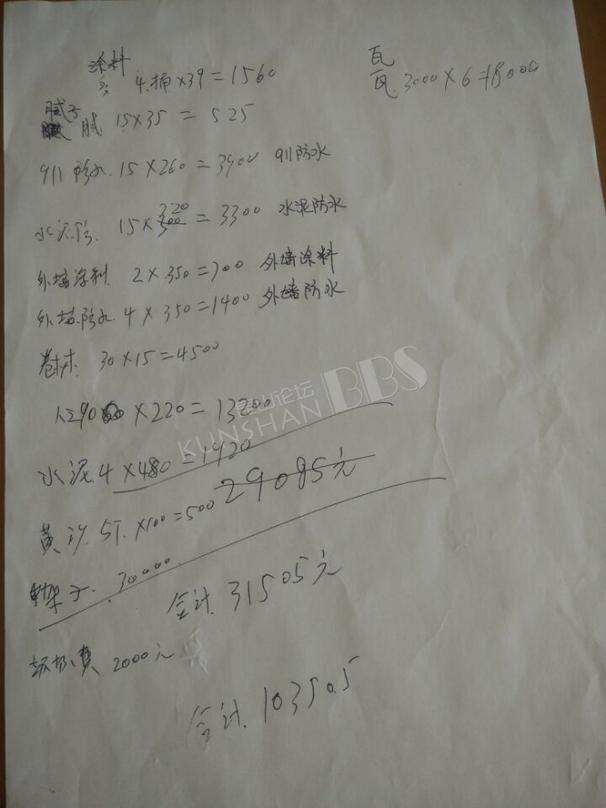 涂料 瓦
4.桶×39=1560 瓦.3000×6=18000
腻子 腻 15×35=525
911防水.15×260=3900 911防水
320
水泥防.15×300=3300 水泥防水
外墙涂料 2×350=700 外墙涂料
外墙.防水.4×350=1400 外墙防水
卷材 30×15=4500
人工90 ×220=13200
昆山论坛
KUNSHAN BBS
水泥.4×480=1920
29085元
黄沙.5T.×100=500
架子.30000
合计.31505元
垃圾费 2000元
合计.10350.5